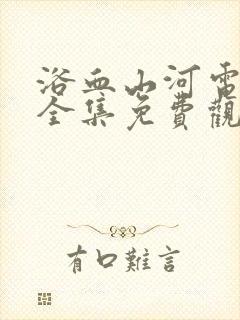 浴血山河電
全集免費觀
有口難言